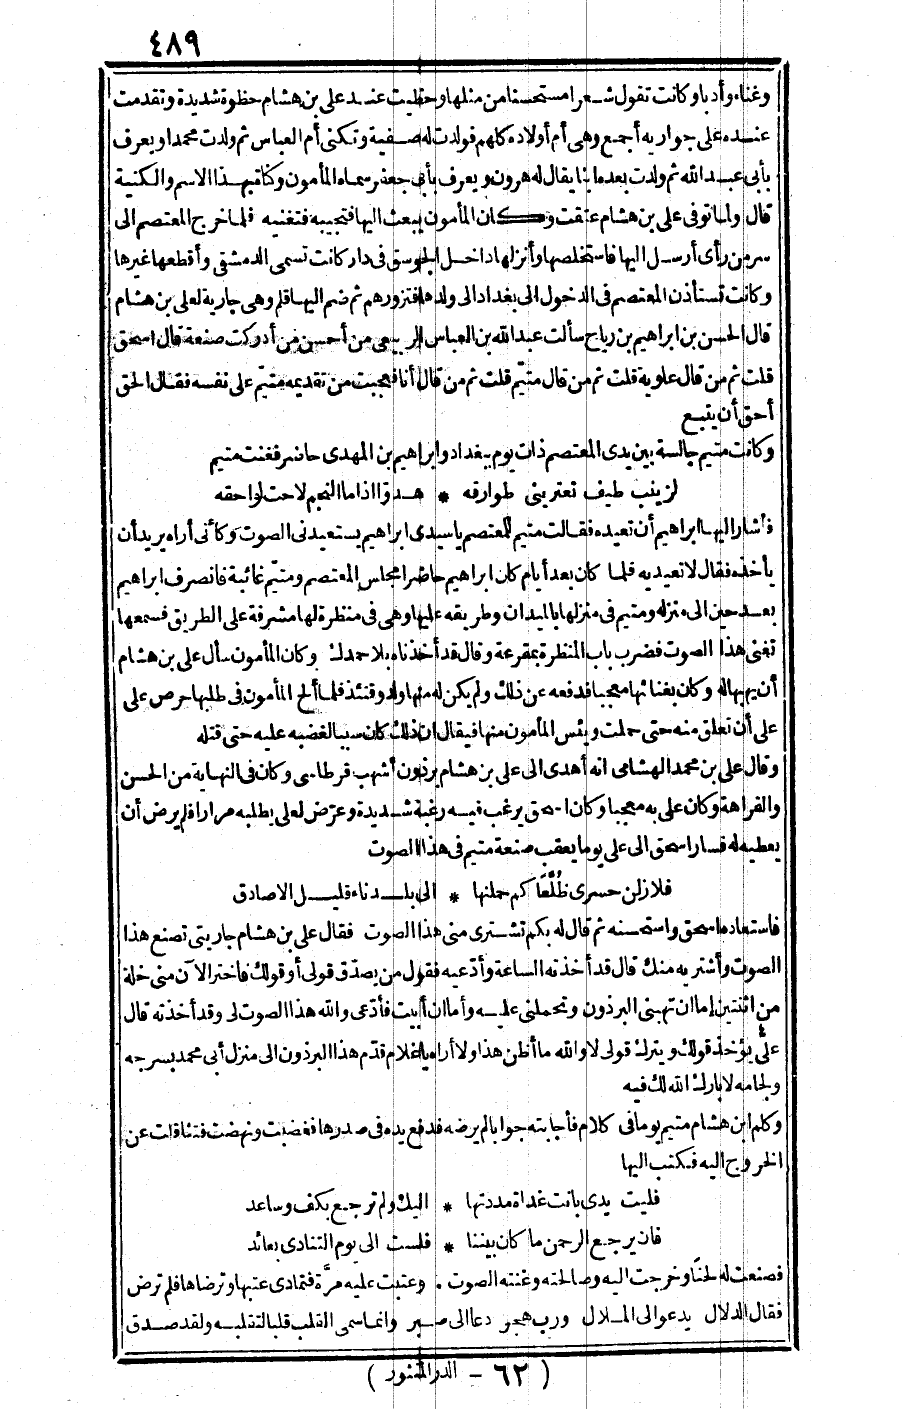 ٤٨٩
وغناء وأدبا وكانت تقول شعرا مستحسنا من مثلها وحظيت عند علي بن هشام حظوة شديدة وتقدمت
عنده على جواريه أجمع وهي أم أولاده كلهم فولدت له صفية وتكنى أم العباس ثم ولدت محمدا ويعرف
بأبي عبد الله ثم ولدت بعده ابنا يقال له هرون ويعرف بأبي جعفر سماه المأمون وكناه بهذا الاسم والكنية
قال ولما توفى علي بن هشام عتقت وكان المأمون يبعث اليها فتجيبه فتغنيه فلما خرج المعتصم الى
سرمن رأى أرسل اليها فاستخلصها وأنزلها داخل الجوسق في دار كانت تسمى الدمشقي وأقطعها غيرها
وكانت تستأذن المعتصم في الدخول الى بغداد الى ولدها فتزورهم ثم ضم اليها قلم وهي جارية لعلي بن هشام
قال الحسن بن ابراهيم بن رياح سألت عبد الله بن العباس الربيعي من أحسن من أدركت صنعة قال اسحق
قلت ثم من قال علوية قلت ثم من قال متيّم قلت ثم من قال أنا فعجبت من تقديمه متيّم على نفسه فقال الحق
أحق أن يتبع
وكانت متيم جالسة بين يدى المعتصم ذات يوم ببغداد وابراهيم بن المهدى حاضر فغنت متيم
لزينب طيف تعتريني طوارقه * هدوّا اذا ما النجم لاحت لواحقه
فأشار اليها ابراهيم أن تعيده فقالت متيم للمعتصم يا سيدى ابراهيم يستعيدنى الصوت وكأنى أراه يريد أن
يأخذه فقال لا تعيديه فلما كان بعد أيام كان ابراهيم حاضرا مجلس المعتصم ومتيّم غائبة فانصرف ابراهيم
بعد حين الى منزله ومتيم فى منزلها بالميدان وطريقه عليها وهى فى منظرة لها مشرفة على الطريق فسمعها
تغنى هذا الصوت فضرب باب المنظرة بمقرعة وقال قد أخذناه بلا حمدك وكان المأمون سأل علي بن هشام
أن يهبها له وكان بغنائها معجبا فدفعه عن ذلك ولم يكن له منها ولد وقتئذ فلما ألح المأمون فى طلبها حرص على
على أن تعلق منه حتى حملت ويئس المأمون منها فيقال ان ذلك كان سببا لغضبه عليه حتى قتله
وقال علي بن محمد الهشامى انه أهدى الى علي بن هشام برذون أشهب قرطاسى وكان فى النهاية من الحسن
والفراهة وكان على به معجبا وكان اسحق يرغب فيه رغبة شديدة وعرّض لعلى بطلبه مرارا فلم يرض أن
يعطيه له فسار اسحق الى على يوما بعقب صنعة متيم فى هذا الصوت
فلا زلن حسرى ظُلَّعًا كم حملنها * الى بلد ناء قليل الاصادق
فاستعاده اسحق واستحسنه ثم قال له بكم تشترى منى هذا الصوت فقال علي بن هشام جاريتى تصنع هذا
الصوت وأشتريه منك قال قد أخذته الساعة وأدّعيه فقول من يصدّق قولى أو قولك فاختر الآن منى خلة
من اثنتين إما ان تهبنى البرذون وتحملنى عليه وأما ان أبيت فأدّعى والله هذا الصوت لى وقد أخذته قال
على يؤخذ قولك ويترك قولى لا والله ما أظن هذا ولا أراه يا غلام قدّم هذا البرذون الى منزل أبى محمد بسرجه
ولجامه لا بارك الله لك فيه
وكلم ابن هشام متيم يوما فى كلام فأجابته جوابا لم يرضه فدفع يده فى صدرها فغضبت ونهضت فتثاقلت عن
الخروج اليه فكتب اليها
فليت يدى بانت غداة مددتها * اليك ولم ترجع بكف وساعد
فان يرجع الرحمن ما كان بيننا * فلست الى يوم التنادى بعائد
فصنعت له لحنًا وخرجت اليه وصالحته وغنته الصوت . وعتبت عليه مرَّة فتمادى عتبها وترضاها فلم ترض
فقال الدلال يدعو الى الملال ورب هجر دعا الى صبر وانما سمى القلب قلبا لتقلبه ولقد صدق
(٦٢ - الدر المنثور)